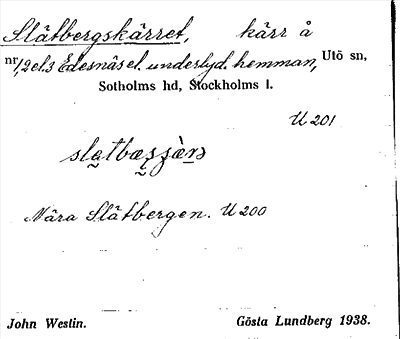 Slätbergskärret, kärr å
nr 1, 2 el. 3 Edesnäs el. underlyd. hemman, Utö sn,
Sotholms hd, Stockholms l.
U 201
Nära Slätbergen. U 200
John Westin. Gösta Lundberg 1938.